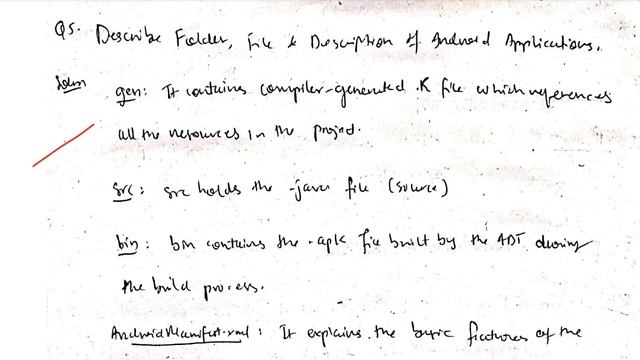 Q5. Describe Folder, File & Description of Android Applications.
Soln gen: It contains compiler-generated .R file which references
all the resources in the project.
src: src holds the .java file (source)
bin: bin contains the .apk file built by the ADT during
the build process.
AndroidManifest.xml: It explains the basic features of the